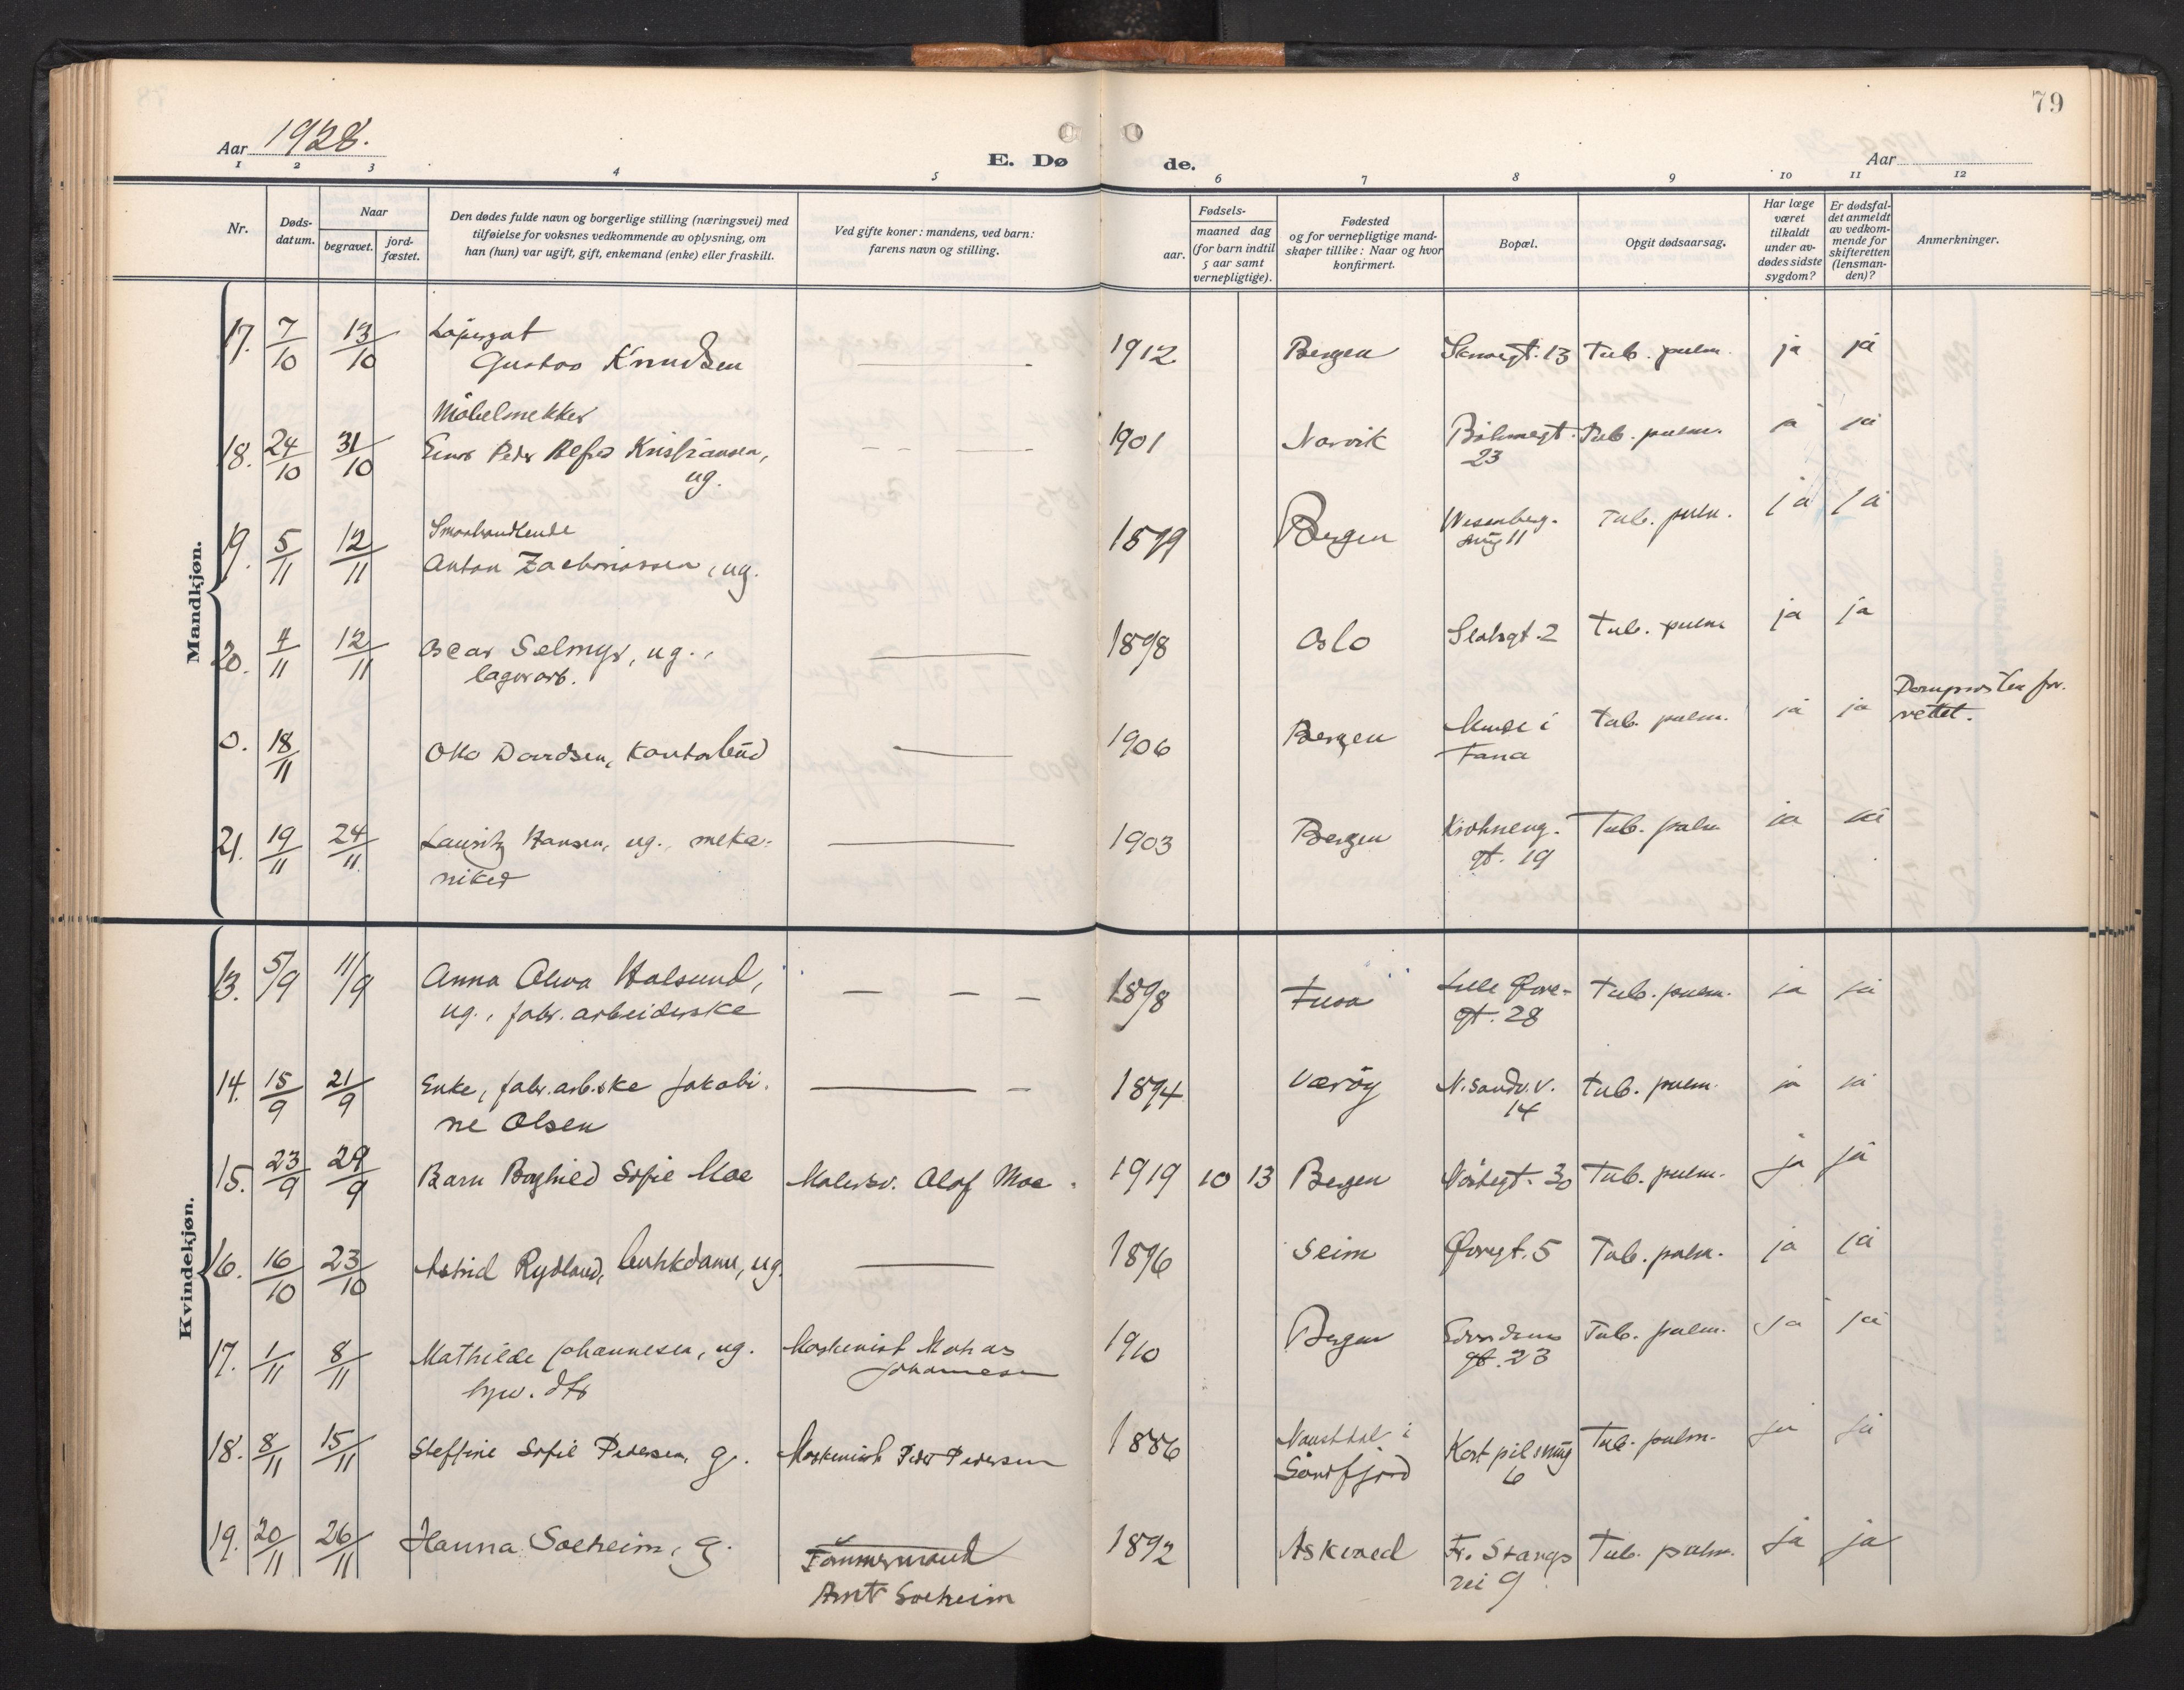 79
Aar 1928.
E. Døde.
Aar
1 2 3 4 5 6 7 8 9 10 11 12
Nr.
Døds-
datum.
Naar
begravet.
jord-
fæstet.
Den dødes fulde navn og borgerlige stilling (næringsvei) med
tilføielse for voksnes vedkommende av oplysning, om
han (hun) var ugift, gift, enkemand (enke) eller fraskilt.
Ved gifte koner: mandens, ved barn:
farens navn og stilling.
Fødsels-
aar.
maaned dag
(for barn indtil
5 aar samt
vernepligtige).
Fødested
og for vernepligtige mand-
skaper tillike: Naar og hvor
konfirmert.
Bopæl.
Opgit dødsaarsag.
Har læge
været
tilkaldt
under av-
dødes sidste
sygdom?
Er dødsfal-
det anmeldt
av vedkom-
mende for
skifteretten
(lensman-
den)?
Anmerkninger.
Mandkjøn.
17. 7/10 13/10 Løpergut
Gustav Knudsen — 1912 Bergen 13 Tub. pulm. ja ja
Møbelsnekker
18. 24/10 31/10 Einar Peder Alfred Kristiansen, — 1901 Narvik Bøhmergt. Tub. pulm. ja ja
ug. 23
Smaahandlende
19. 5/11 12/11 Anton Zachariassen, ug. 1879 Bergen Wesenberg- Tub. pulm. ja ja
smug 11
20. 7/11 12/11 Oscar Selmyr, ug., — 1898 Oslo 2 Tub. pulm ja ja
lagerarb.
0. 18/11 Otto Davidsen, Kontorbud — 1906 Bergen i Tub. pulm. ja ja Domprosten for-
Fana rettet.
21. 19/11 24/11 Lauritz Hansen, ug. meka- — 1903 Bergen Krohneng- Tub. pulm ja ja
niker gt. 19
Kvindekjøn.
13. 5/9 11/9 Anna Oliva Halsund, — — — 1898 Fusa Lille Øvre- Tub. pulm. ja ja
ug., fabr. arbeiderske gt. 28
14. 15/9 21/9 Enke, fabr. arb.ske Jakobi- — — 1894 Værøy N. Sandv. v. Tub. pulm. ja ja
ne Olsen 14
15. 23/9 29/9 Barn Borghild Sofie Moe Malersv. Olaf Moe. 1919 10 13 Bergen Nøstegt. 30 Tub. pulm. ja ja
16. 16/10 23/10 Astrid Rydland, butikdame, ug. — 1896 Seim Øvregt. 5 Tub. pulm. ja ja
17. 1/11 8/11 Mathilde Johannesen, ug. Maskinist 1910 Bergen Tub. pulm. ja ja
hjv. dtr Johannesen gt. 23
18. 8/11 15/11 Steffine Sofie Pedersen, g. Maskinist Peder Pedersen 1886 Naustdal i Kortpilsmug Tub. pulm. ja ja
Søndfjord 6
19. 20/11 26/11 Hanna Solheim, g. Tømmermand 1892 Askvoll Fr. Stangs Tub. pulm. ja ja
Arnt Solheim vei 9